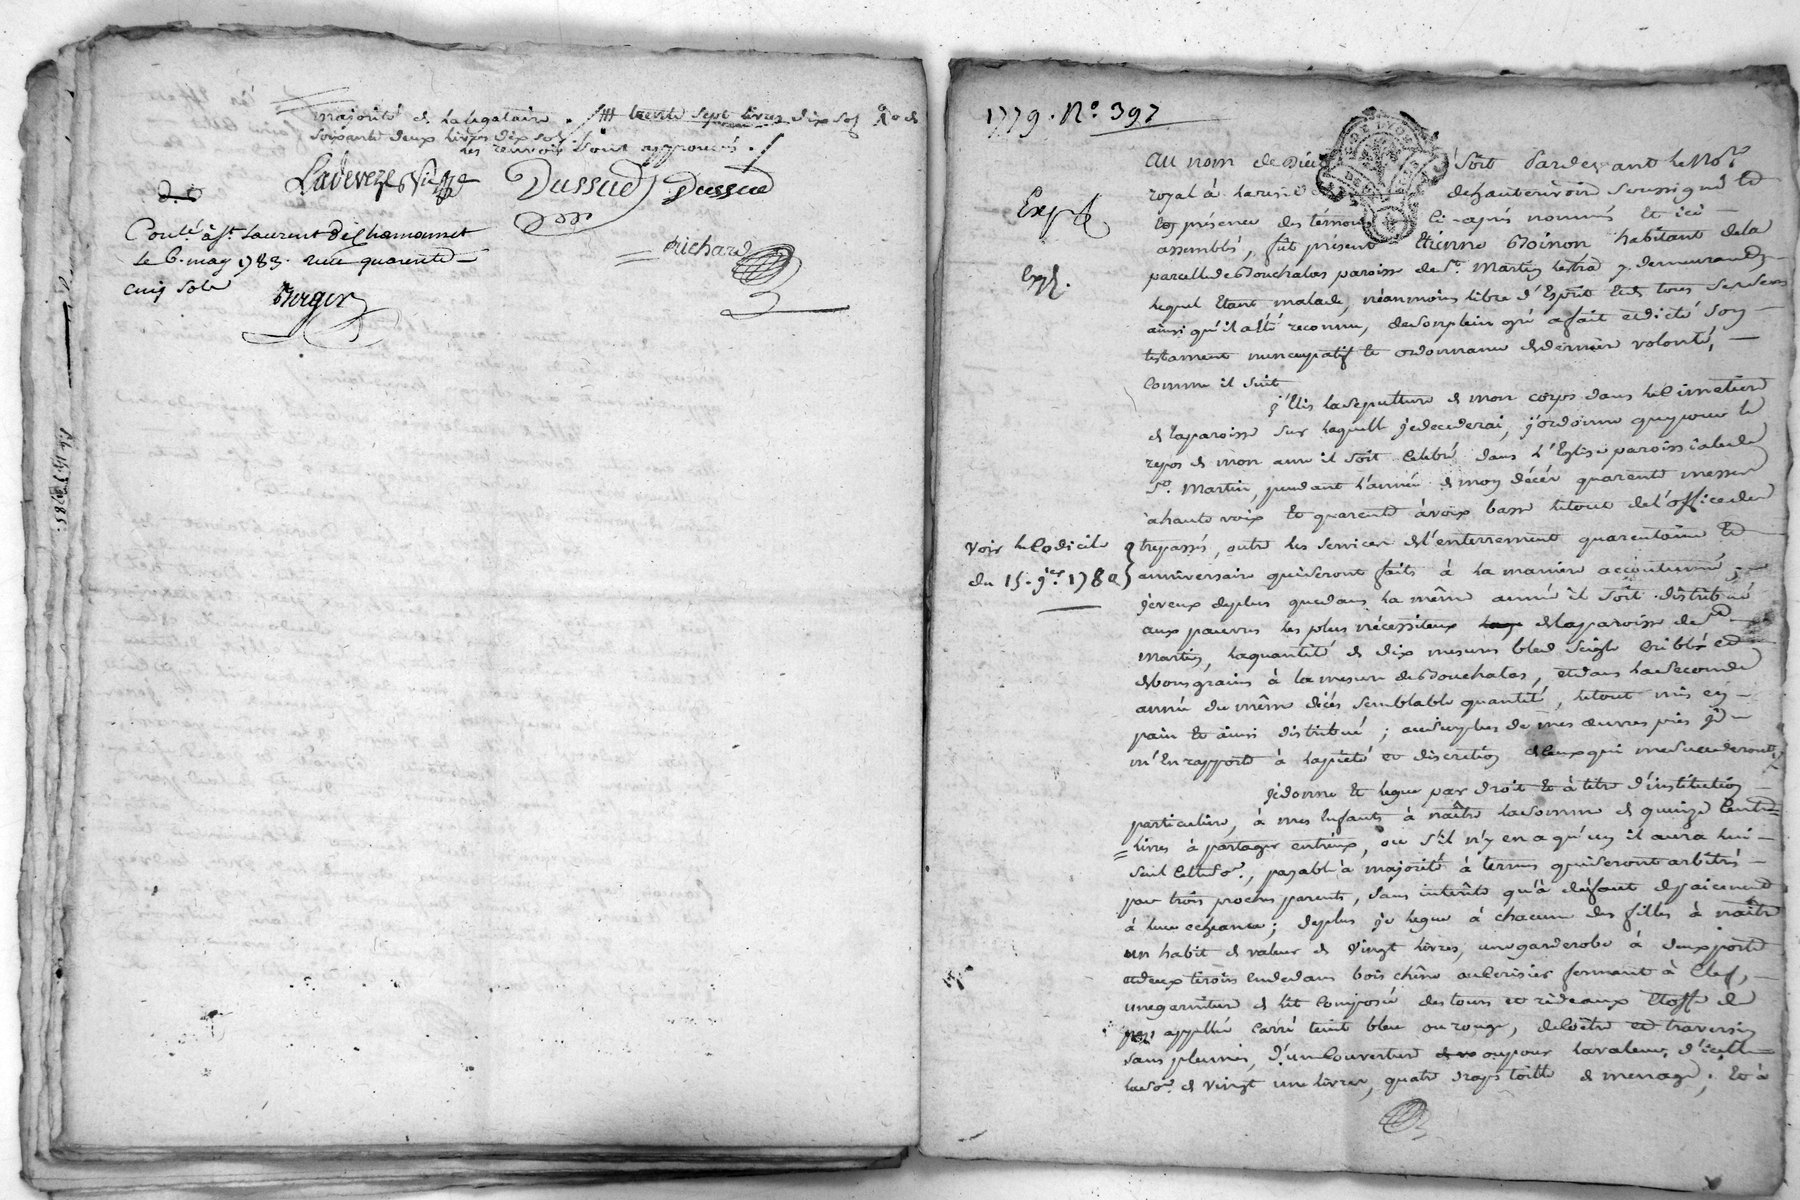 majorité de la legataire. trente sept livres dix sols
soixante deux livres dix sols
les renvois sont approuvés.
Ladeveze Dussud Dussud
Conlé à St. Laurent de Chamousset
le 6. may 1783. reçu quarente
cinq sols
Richard
Berger
1779. No. 397
au nom de Dieu soit Pardevant le Nore
royal à de hauterivoir soussigné et
en présence des témoins ci-après nommés et ici
assemblés, fût présent Etienne Boinon habitant de la
parcelle de Bouchalas paroisse de St. Martin Lestra y demeurand
lequel Etant malade, néanmoins libre d'Esprit et de tous ses sens
ainsi qu'il a été reconnu, de son plein gré a fait et dicté son
testament nuncupatif et ordonnance de dernière volonté,
comme il suit
j'Elis la sepulture de mon corps dans le Cimetiere
de la paroisse sur laquelle je decederai, j'ordonne que pour le
repos de mon ame il soit celebré dans l'Eglise paroissiale de
St. Martin, pendant l'année de mon décés quarente messes
à haute voix et quarente à voix basse le tout de l'office des
trepassés, outre les services de l'enterrement quarentaine et
anniversaire qui seront faits à la maniere accoutumé;
Exp
Exp.
Voir le Codicile
du 15. 1780
je veux de plus que dans la même année il soit distribué
aux pauvres les plus nécessiteux de la paroisse de St.
Martin, la quantité de dix mesures bled seigle criblé et
de bons grains à la mesure de Bouchalas, et dans la seconde
année du même décés semblable quantité, le tout mis en
pain et ainsi distribué; au surplus de mes œuvres pies je
m'En rapporte à la piété et discretion de ceux qui me succederont
je donne et legue par droit et à titre d'institution
particuliere, à mes Enfants à naître la somme de quinze cents
livres à partager entr'eux, ou s'il n'y en a qu'un il aura lui
seul cette so., payable à majorité à termes qui seront arbitrés
par trois proches parents, sans interêts qu'à défaut de paiement
à leur echeance; de plus je legue à chacune des filles à naître
un habit de valeur de vingt livres, une garderobe à deux portes
et deux tiroirs en dedans bois chêne ou cerisier fermant à clef,
une garniture de lit composée des tours et rideaux Etoffe de
pays appellée carré teint bleu ou rouge, de coëtre et traversin
sans plumes, d'un couverture ou pour la valeur d'icelle
la so. de vingt une livres, quatre draps toille de menage; et à